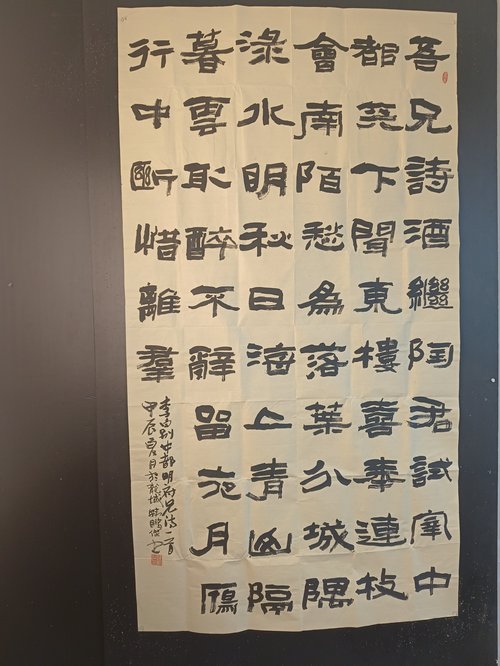 吾兄詩酒繼陶君試宰中
都天下聞東樓喜奉連枝
會南陌愁為落葉分城隅
淥水明秋日海上青山隔
暮雲取醉不辭留夜月鴈
行中斷惜離羣
李白别中都明府兄诗一首
甲辰酉月於龍城